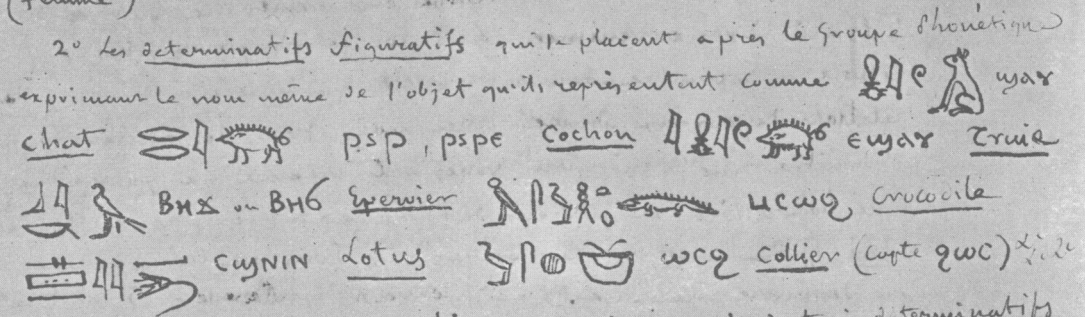 2° Les determinatifs figuratifs qui se placent après le groupe Phonétique
exprimant le nom même de l'objet qu'ils représentent comme ϣⲁⲩ
chat ⲣⲓⲣ, ⲣⲓⲣⲉ Cochon ⲉϣⲁⲩ Truie
ⲃⲏϫ ou ⲃⲏϭ Epervier ⲙⲥⲱϩ Crocodile
ⲥϣⲛⲓⲛ Lotus ⲱⲥϩ Collier (Copte ϩⲱⲥ)
determinatifs